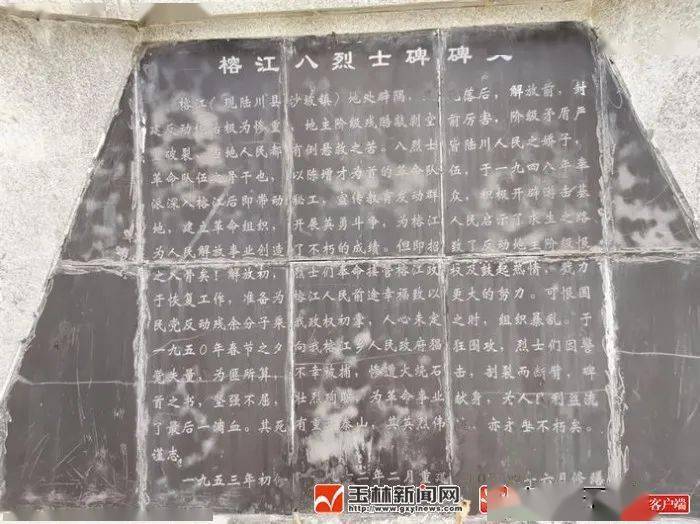 榕江八烈士碑碑
榕江(现陆川县沙坡镇)地处僻隅,落后,解放前,封
建反动 极为惨重 地主阶级残酷敲剥 前厉害,阶级矛盾严
破裂, 地人民都有倒悬故之苦。八烈士皆陆川人民之娇子,
革命队伍之骨干也,以陈增才为首的革命队伍,于一九四八年奉
派深入榕江后即带动秘工,宣传教育发动群众,积极开辟游击基
地,建立革命组织,开展英勇斗争,为榕江人民启示了求生之路
为人民解放事业创造了不朽的成绩。但即招致了反动地主阶级恨
之入骨矣!解放初,烈士们革命接管榕江政权及鼓起热情,戮力
于恢复工作,准备为榕江人民前途幸福致以更大的努力。可恨国
民党反动残余分子乘我政权初掌,人心未定之时,组织暴乱。于
一九五0年春节之夕向我榕江乡人民政府猖狂围攻,烈士们因警
觉失量,为匪所算,不幸被捕,惨遭火烧石击,割裂而断臂,碑
首之书,坚强不屈,壮烈殉 ,为革命事业献身,为人 利益流
了最后一滴血。其死有重 泰山,其英烈伟 亦才垒不朽矣。
谨志。
一九五三年初 二年二月重 十六月修
玉林新闻网
www.gxylnews.com
客户端